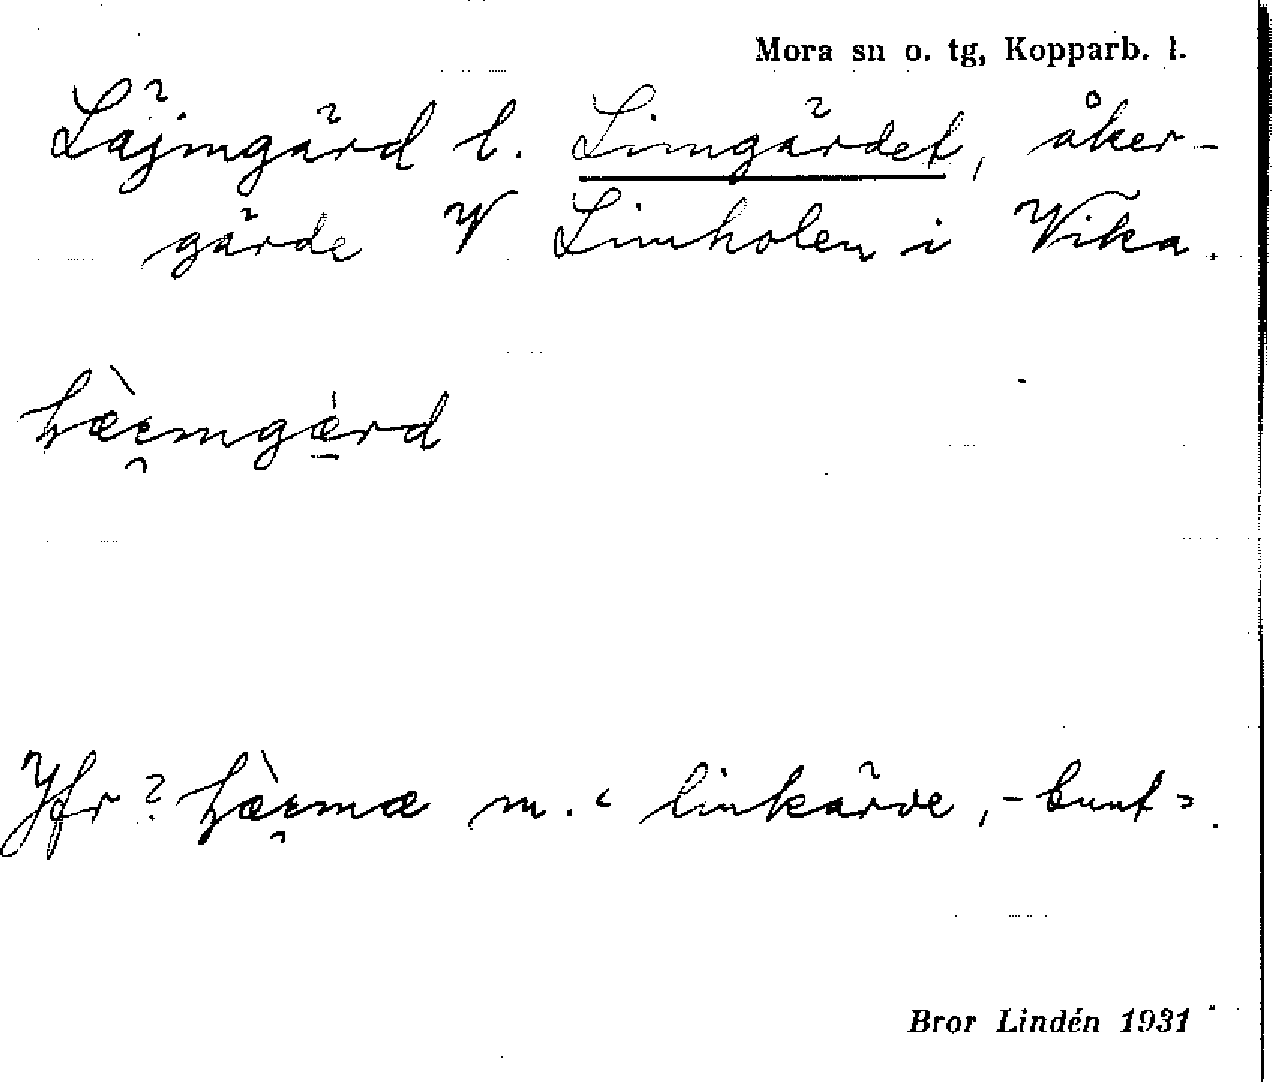 Mora sn o. tg, Kopparb. l.
Läjmgärd l. Limgärdet, åker-
gärde V Limholen i Vika.
Jfr ? m. ‹ linkärve, -bunt ›.
Bror Lindén 1931